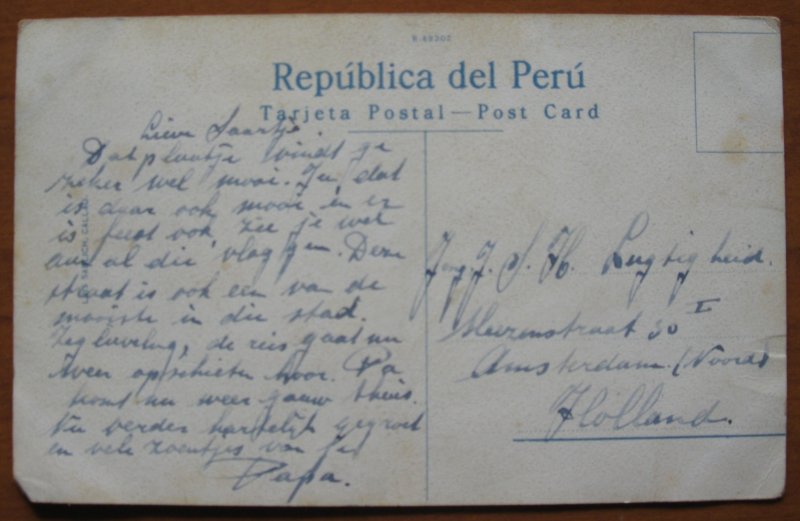 R-69202
República del Perú
Tarjeta Postal — Post Card
Lieve Saartje.
Dat plaatje vindt ge
zeker wel mooi. Ja, dat
is daar ook mooi en er
is feest ook, zie je wel
aan al die vlaggen. Deze
straat is ook een van de
mooiste in die stad.
Zeg lieveling, de reis gaat nu
weer opschieten hoor. Pa
komt nu weer gauw thuis.
Nu verder hartelijk gegroet
en vele zoentjes van je
Papa.
CALLAO
J. S. H. Lugtigheid.
Meezenstraat 30 I
Amsterdam. (Noord)
Holland.